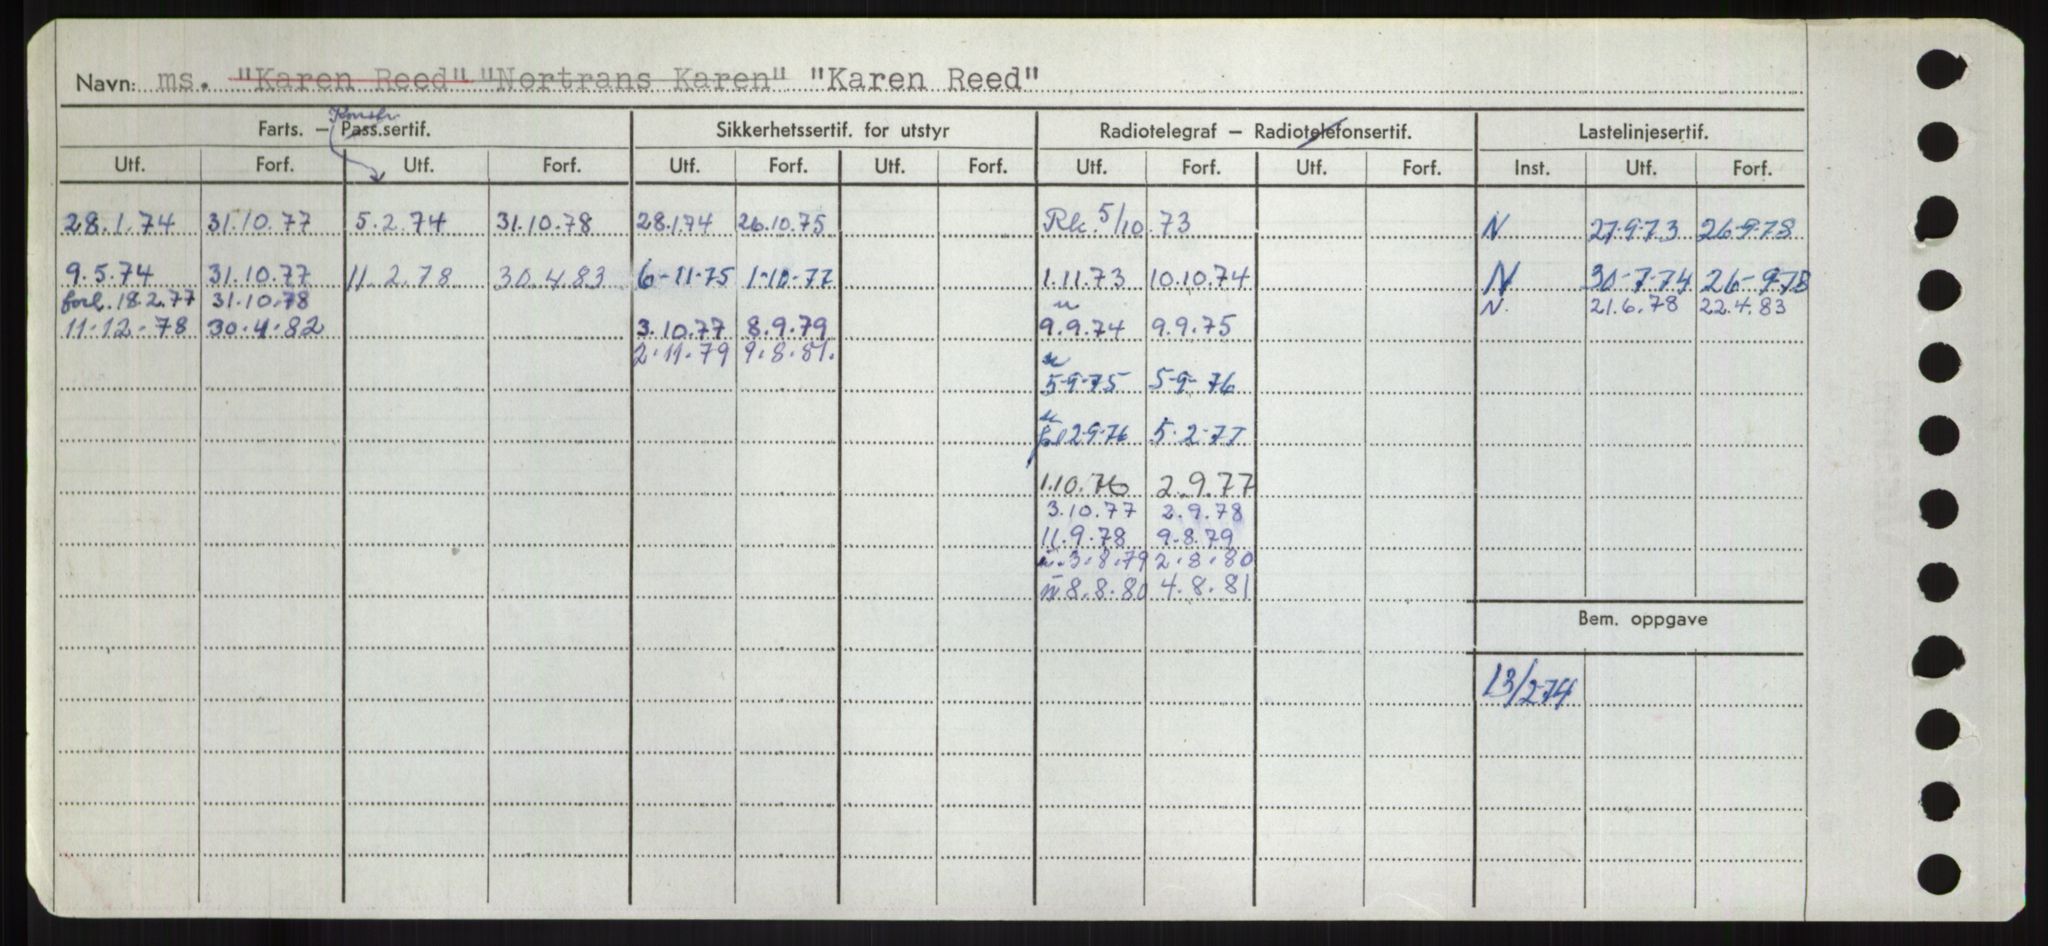 Navn: ms. "Karen Reed" "Nortrans Karen" "Karen Reed"
Konstr
Farts. – Pass.sertif. Sikkerhetssertif. for utstyr Radiotelegraf – Radiotelefonsertif. Lastelinjesertif.
Utf. Forf. Utf. Forf. Utf. Forf. Utf. Forf. Utf. Forf. Utf. Forf. Inst. Utf. Forf.
28.1.74 31.10.77 5.2.74 31.10.78 28.1.74 26.10.75 Rk. 5/10.73 N 27.9.73 26.9.78
9.5.74 31.10.77 11.2.78 30.4.83 6-11-75 1-10-77 1.11.73 10.10.74 N 30-7-74 26-9-78
forl. 18.2.77 31.10.78 N. 21.6.78 22.4.83
11-12-78 30.4.82 3.10.77 8.9.79 9.9.74 9.9.75
2.11.79 9.8.81.
5-9-75 5-9-76
2-9-76 5-2-77
1.10.76 2.9.77
3.10.77 2.9.78
11.9.78 9.8.79
3.8.79 2.8.80
8.8.80 4.8.81
Bem. oppgave
13/2-74